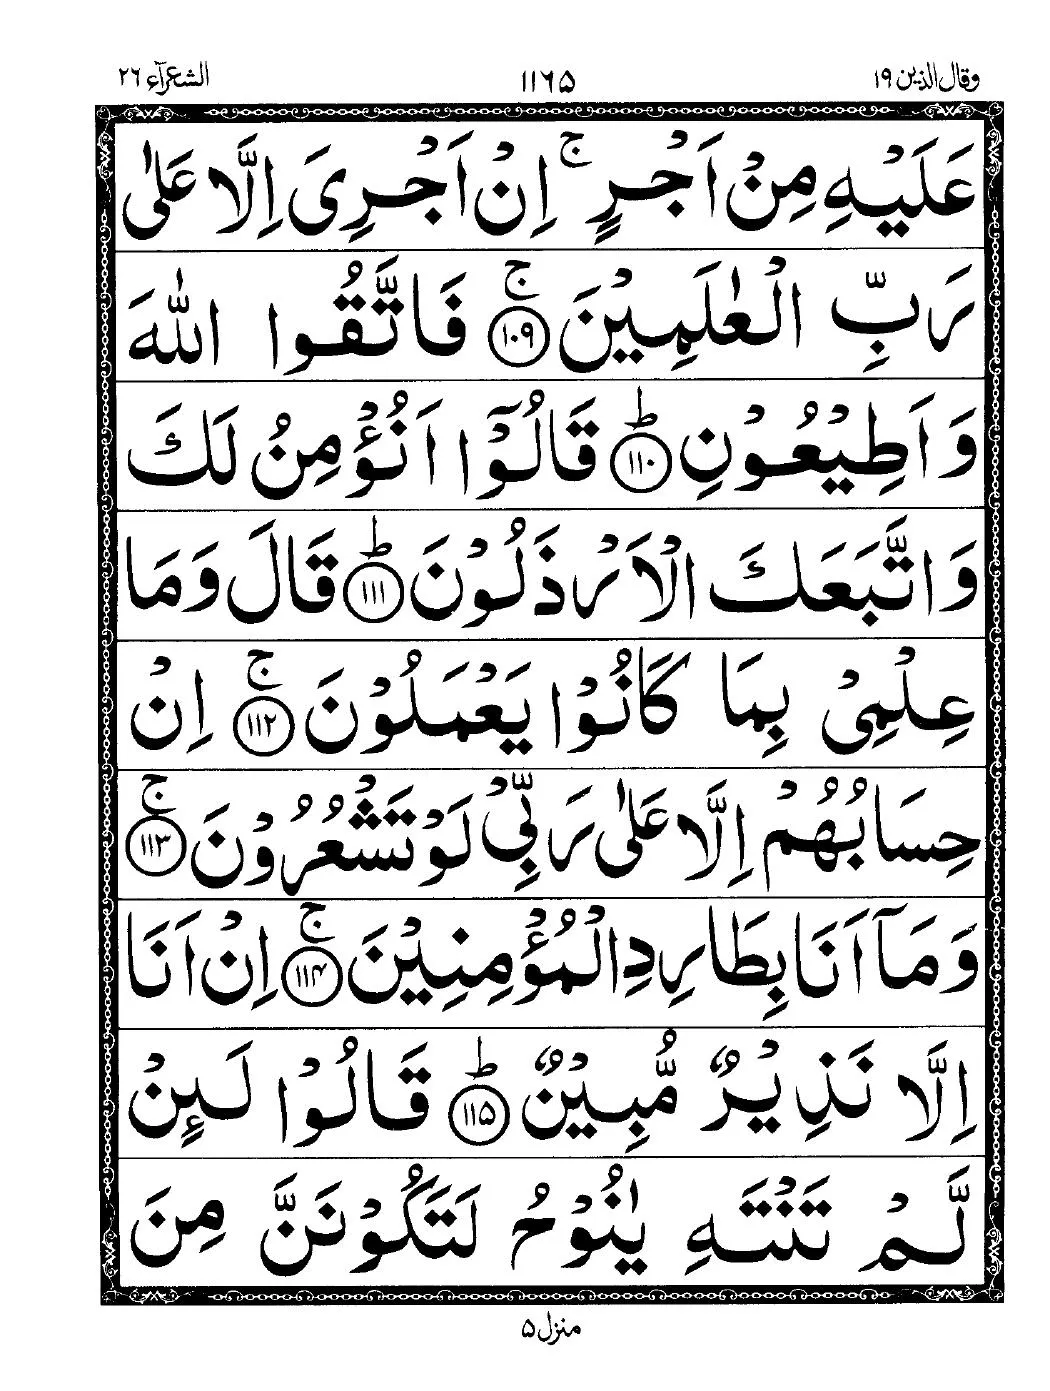 وقال الذين ۱۹
۱۱۶۵
الشعرآء ۲۶
عَلَيْهِ مِنْ اَجْرٍ ۚ اِنْ اَجْرِىَ اِلَّا عَلٰى
رَبِّ الْعٰلَمِيْنَ ۚ ۱۰۹ فَاتَّقُوا اللّٰهَ
وَاَطِيْعُوْنِ ؕ ۱۱۰ قَالُوْٓا اَنُؤْمِنُ لَكَ
وَاتَّبَعَكَ الْاَرْذَلُوْنَ ؕ ۱۱۱ قَالَ وَمَا
عِلْمِىْ بِمَا كَانُوْا يَعْمَلُوْنَ ۚ ۱۱۲ اِنْ
حِسَابُهُمْ اِلَّا عَلٰى رَبِّىْ لَوْ تَشْعُرُوْنَ ۚ ۱۱۳
وَمَآ اَنَا بِطَارِدِ الْمُؤْمِنِيْنَ ۚ ۱۱۴ اِنْ اَنَا
اِلَّا نَذِيْرٌ مُّبِيْنٌ ؕ ۱۱۵ قَالُوْا لَئِنْ
لَّمْ تَنْتَهِ يٰنُوْحُ لَتَكُوْنَنَّ مِنَ
منزل ۵